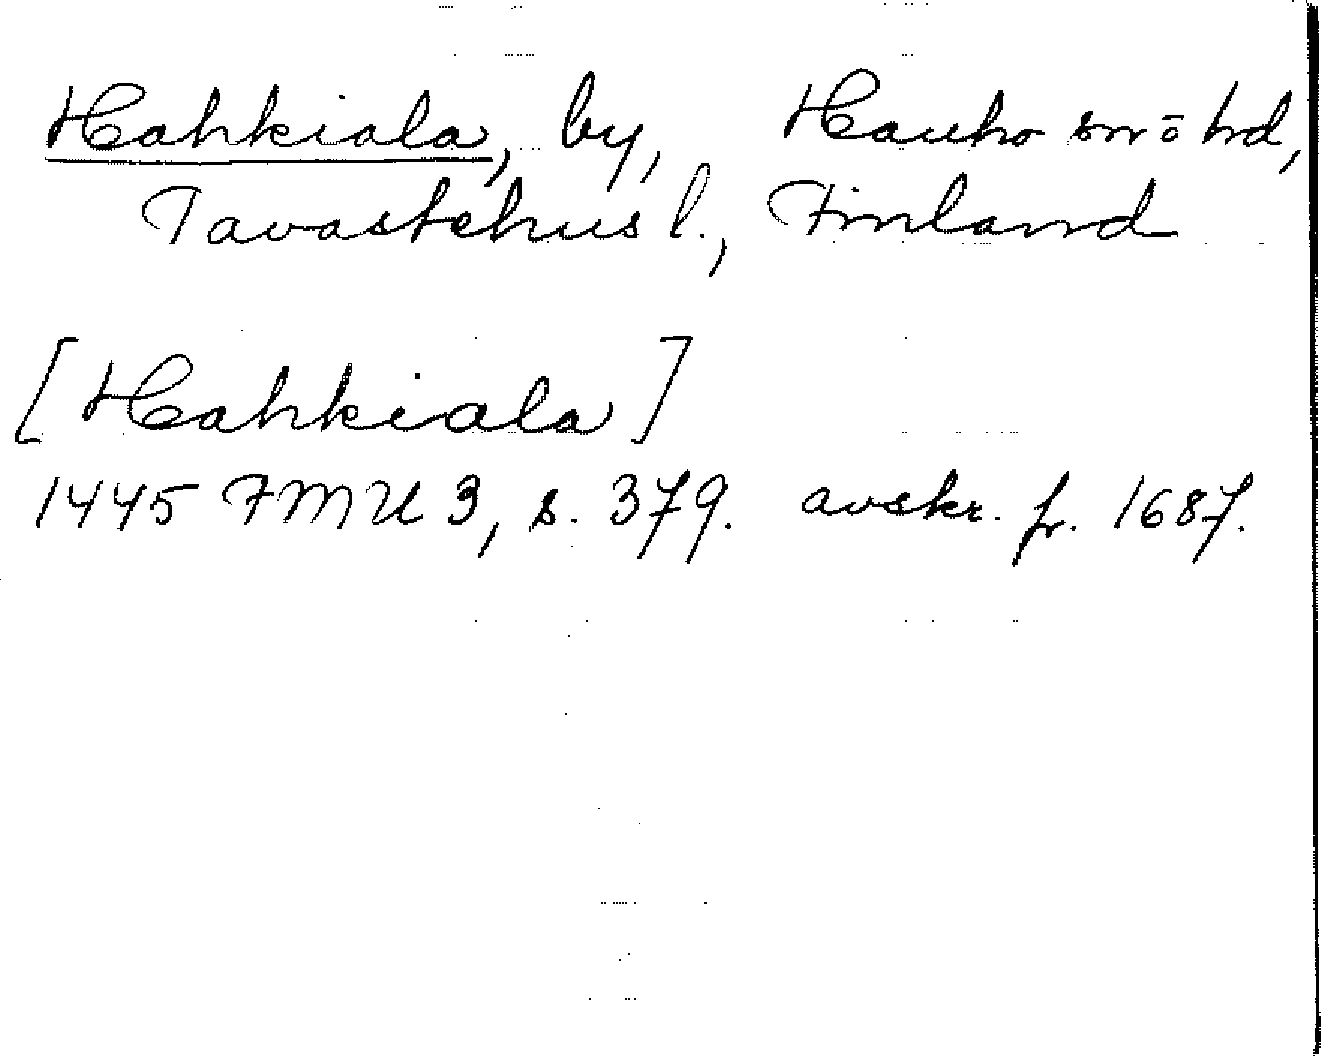 Hahkiala, by, Hauho sn o hd,
Tavastehus l., Finland
[Hahkiala]
1445 FMU 3, s. 379. avskr. fr. 1687.